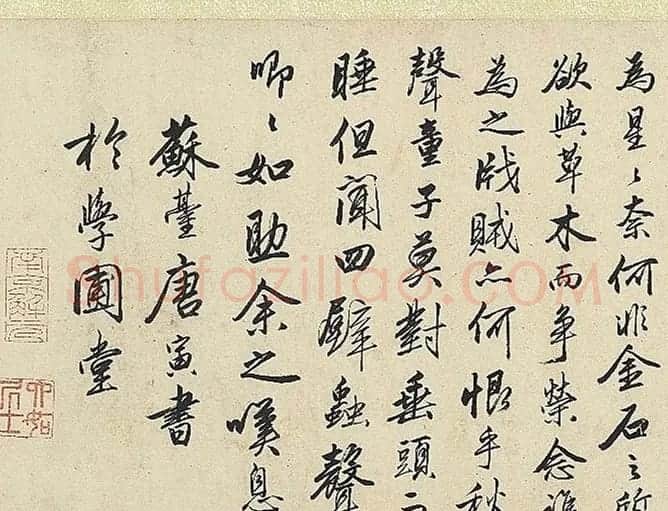 為星〻奈何非金石之所
欲與草木而争榮念誰
為之戕賊亦何恨乎秋
聲童子莫對垂頭而
睡但聞四壁蟲聲
唧〻如助余之嘆息
蘇臺唐寅書
於學圃堂
六如居士
shufaziliao.com